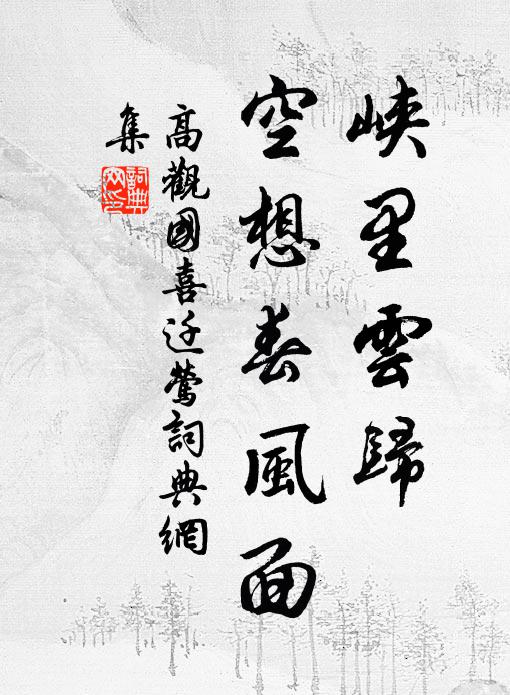 峽里雲歸
空想春風面
高觀國喜迁鶯詞典網
集
詞典網印